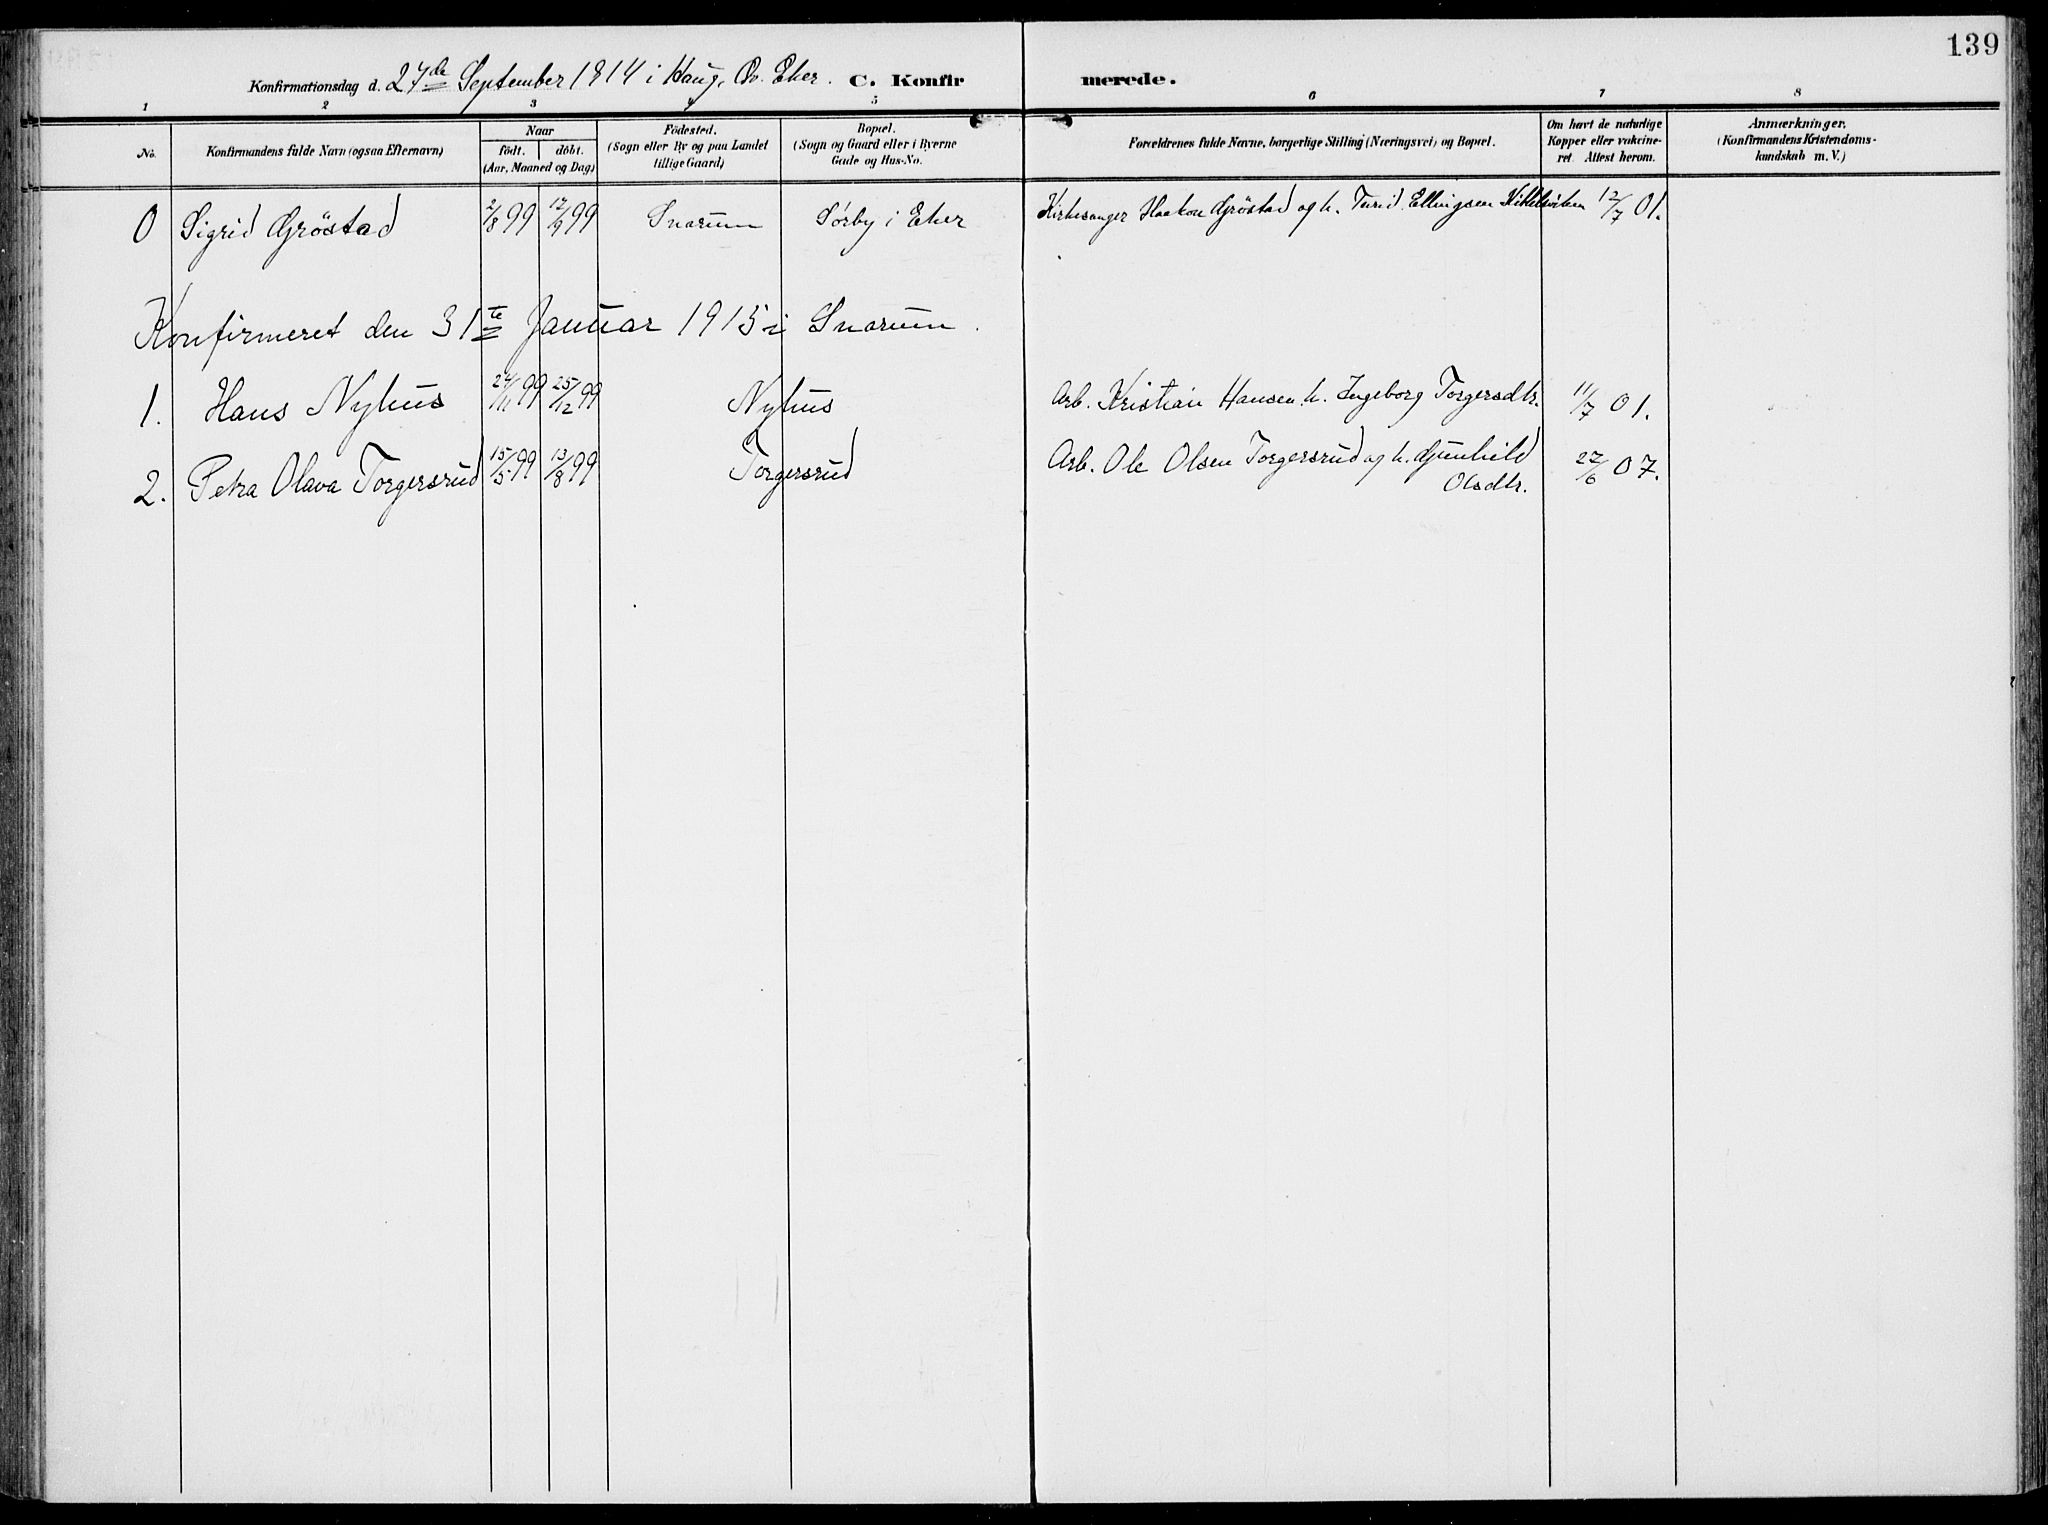 139
Konfirmationsdag d. 27de September 1914 i Haug, Øv. Eker. C. Konfirmerede.
1 2 3 4 5 6 7 8
No. Konfirmandens fulde Navn (ogsaa Efternavn) Naar födt. döbt. (Aar, Maaned og Dag) Födested. (Sogn eller By og paa Landet tillige Gaard) Bopæl. (Sogn og Gaard eller i Byerne Gade og Hus-No. Forældrenes fulde Navne, borgerlige Stilling (Næringsvei) og Bopæl. Om havt de naturlige Kopper eller vakcineret. Attest herom. Anmærkninger. (Konfirmandens Kristendomskundskab m. V.)
0 Sigrid Gröstad 2/8 99 12/9 99 Snarum Sørby i Eker Kirkesanger Haakon Gröstad og h. Turid Ellingsen 12/7 01.
Konfirmeret den 31te Januar 1915 i Snarum.
1. Hans Nyhus 24/11 99 25/12 99 Nyhus Arb. Kristian Hansen h. Ingeborg Torgersdtr. 11/7 01.
2. Petra Olava Torgersrud 15/5 99 13/8 99 Torgersrud Arb. Ole Olsen Torgersrud og h. Gunhild 27/6 07.
Olsdtr.